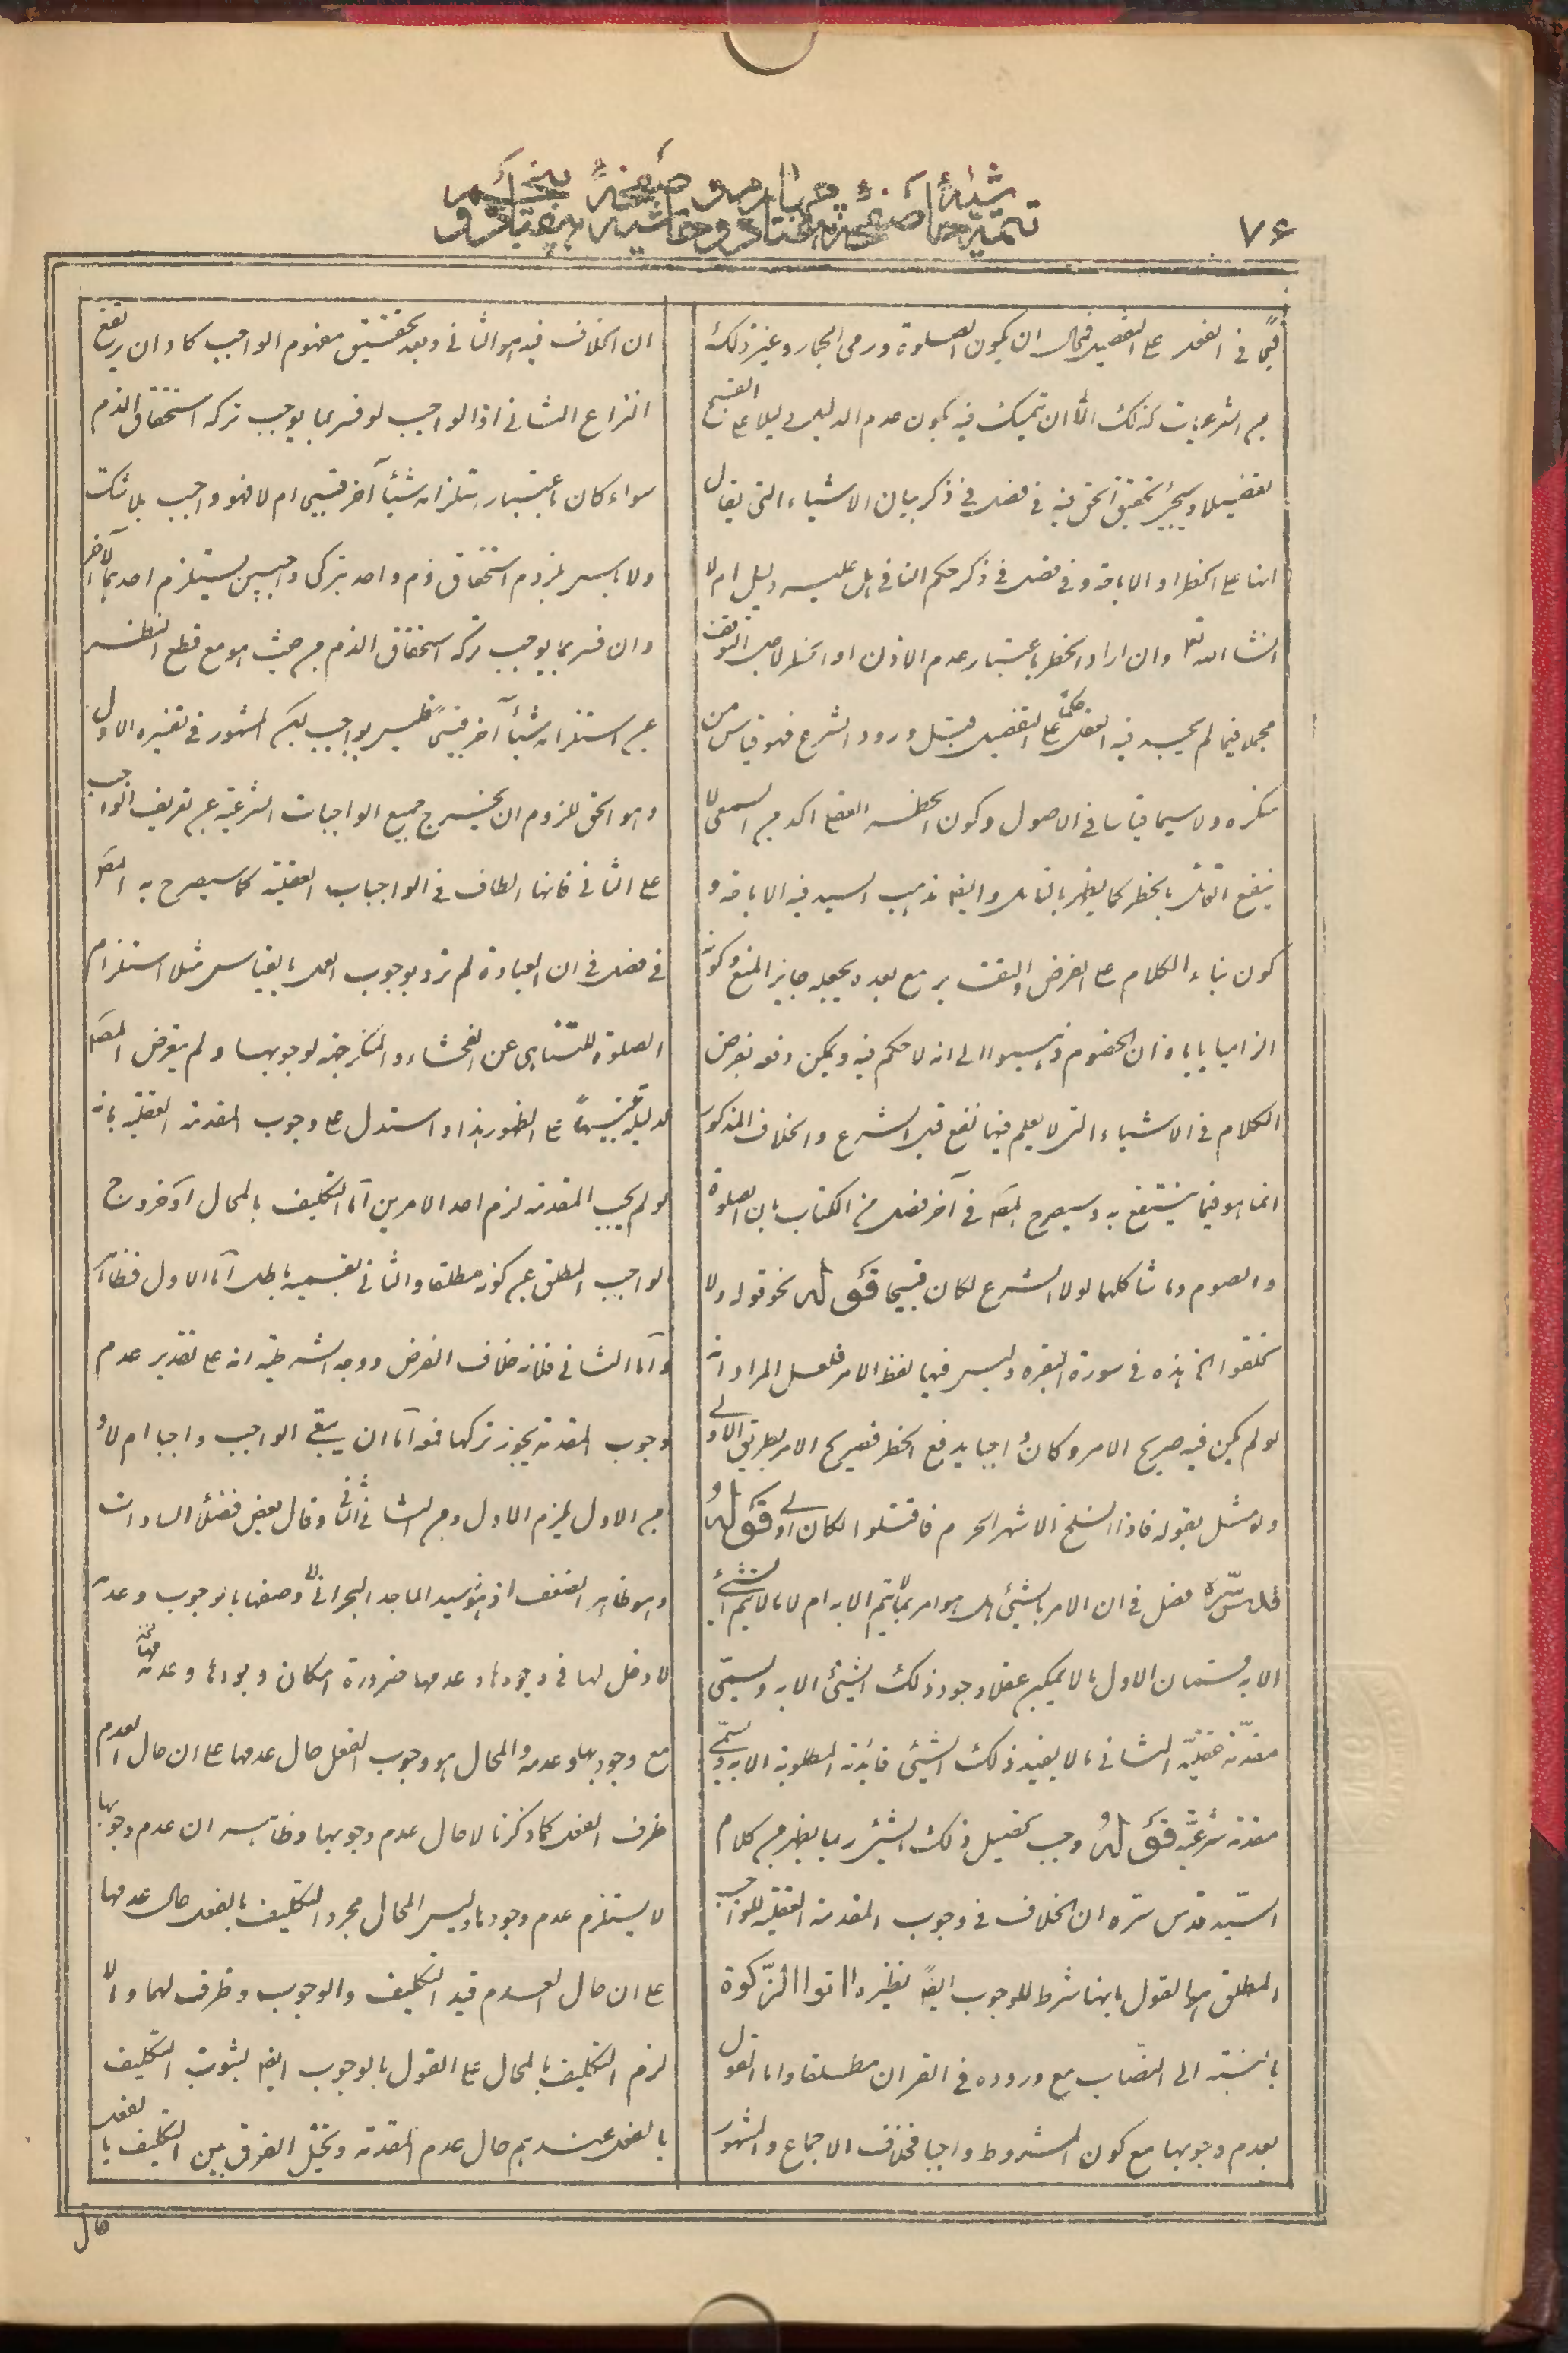 ٧۶
قبحا في العقل على التفصيل فمحال ان يكون الصلوة ورمي الجمار وغير ذلك
من الشرعيات كذلك الا ان يتمسك فيه بكون عدم الدليل دليلا على القبح
تفصيلا وسيجئ تحقيق الحق فيه في فصل في ذكر بيان الاشياء التي يقال
انها على الحظر او الاباحة وفي فصل في ذكر حكم النافي هل عليه دليل ام لا
انشاء الله تعالى وان اراد الحظر باعتبار عدم الاذن او الحظر لاجل التوقف
مجملا فيما لم يجد فيه العقل حكما على التفصيل قبل ورود الشرع فهو قياس من
منكره ولا سيما قياسا في الاصول وكون الحظر العقلي اكد من السمعي لا
ينفع القائل بالحظر كما يظهر بالتامل وايضا مذهب السيد فيه الاباحة و
كون بناء الكلام على الفرض والتقدير مع بعده يجعله جايز المنع وكونه
الزاميا ياباه ان الخصوم ذهبوا الى انه لا حكم فيه ويمكن دفعه بفرض
الكلام في الاشياء التي لا يعلم فيها نفع قبل الشرع والخلاف المذكور
انما هو فيما ينتفع به وسيصرح المص في آخر فصل من الكتاب بان الصلوة
والصوم وما شاكلهما لولا الشرع لكان قبيحا قوله نحو قوله ولا
تحلقوا الخ هذه في سورة البقرة وليس فيها لفظ الامر فلعل المراد انه
لو لم يكن فيه صريح الامر وكان واجبا يدفع الحظر فصريح الامر بطريق الاولى
ولو مثل بقوله فاذا انسلخ الاشهر الحرم فاقتلوا لكان اولى قوله
قدس سره فصل في ان الامر بالشيئ هل هو امر بما لا يتم الا به ام لا ما لا يتم الشيئ
الا به قسمان الاول ما لا يمكن عقلا وجود ذلك الشيئ الا به ويسمى
مقدمة عقلية الثاني ما لا يفيد ذلك الشيئ فائدته المطلوبة الا به ويسمى
مقدمة شرعية قوله وجب تحصيل ذلك الشيئ ربما يظهر من كلام
السيد قدس سره ان الخلاف في وجوب المقدمة العقلية للواجب
المطلق اما القول بانها شرط للوجوب ايضا نظيره اتوا الزكوة
بالنسبة الى النصاب مع وروده في القران مطلقا واما القول
بعدم وجوبها مع كون المشروط واجبا فخلاف الاجماع والمشهور
ان الخلاف فيه هو الثاني وبعد تحقيق مفهوم الواجب كاد ان يرتفع
النزاع الثاني اذ الواجب لو فسر بما يوجب تركه استحقاق الذم
سواء كان باعتبار استلزامه شيئا آخر قبيحا ام لا فهو واجب بلا شك
ولا باس بلزوم استحقاق ذم واحد بتركي واجبين يستلزم احدهما الآخر
وان فسر بما يوجب تركه استحقاق الذم من حيث هو مع قطع النظر
عن استلزامه شيئا آخر قبيحا فليس بواجب لكن المشهور في تفسيره الاول
وهو الحق للزوم ان يخرج جميع الواجبات الشرعية عن تعريف الواجب
على الثاني فانها الطاف في الواجبات العقلية كما سيصرح به المص
في فصل في ان العبادة لم ترد بوجوب العمل بالقياس مثلا استلزام
الصلوة للتناهي عن الفحشاء والمنكر جهة لوجوبها ولم يتعرض المص
لدليله تنبيها على الظهور هذا واستدل على وجوب المقدمة العقلية بانه
لو لم يجب المقدمة لزم احد الامرين اما التكليف بالمحال او خروج
الواجب المطلق عن كونه مطلقا والثاني بقسميه باطل اما الاول فظاهر
واما الثاني فلانه خلاف الفرض ووجه الشرطية انه على تقدير عدم
وجوب المقدمة يجوز تركها فح اما ان يبقى الواجب واجبا ام لا و
من الاول يلزم الاول ومن الثاني الثاني وقال بعض فضلاء السادات
وهو ظاهر الضعف اذ وصفها بالوجوب وعدمه
لا دخل لها في وجودها وعدمها ضرورة امكان وجودها وعدمها
مع وجوبها وعدمه والمحال هو وجوب الفعل حال عدمها على ان حال العدم
ظرف الفعل كما ذكرنا لا حال عدم وجوبها وظاهر ان عدم وجوبها
لا يستلزم عدم وجودها وليس المحال مجرد التكليف بالفعل حال عدمها
على ان حال العدم قيد التكليف والوجوب وظرف لهما والا
لزم التكليف بالمحال على القول بالوجوب ايضا لثبوت التكليف
بالفعل عندهم حال عدم المقدمة وتخيل الفرق بين التكليف بالفعل
حال